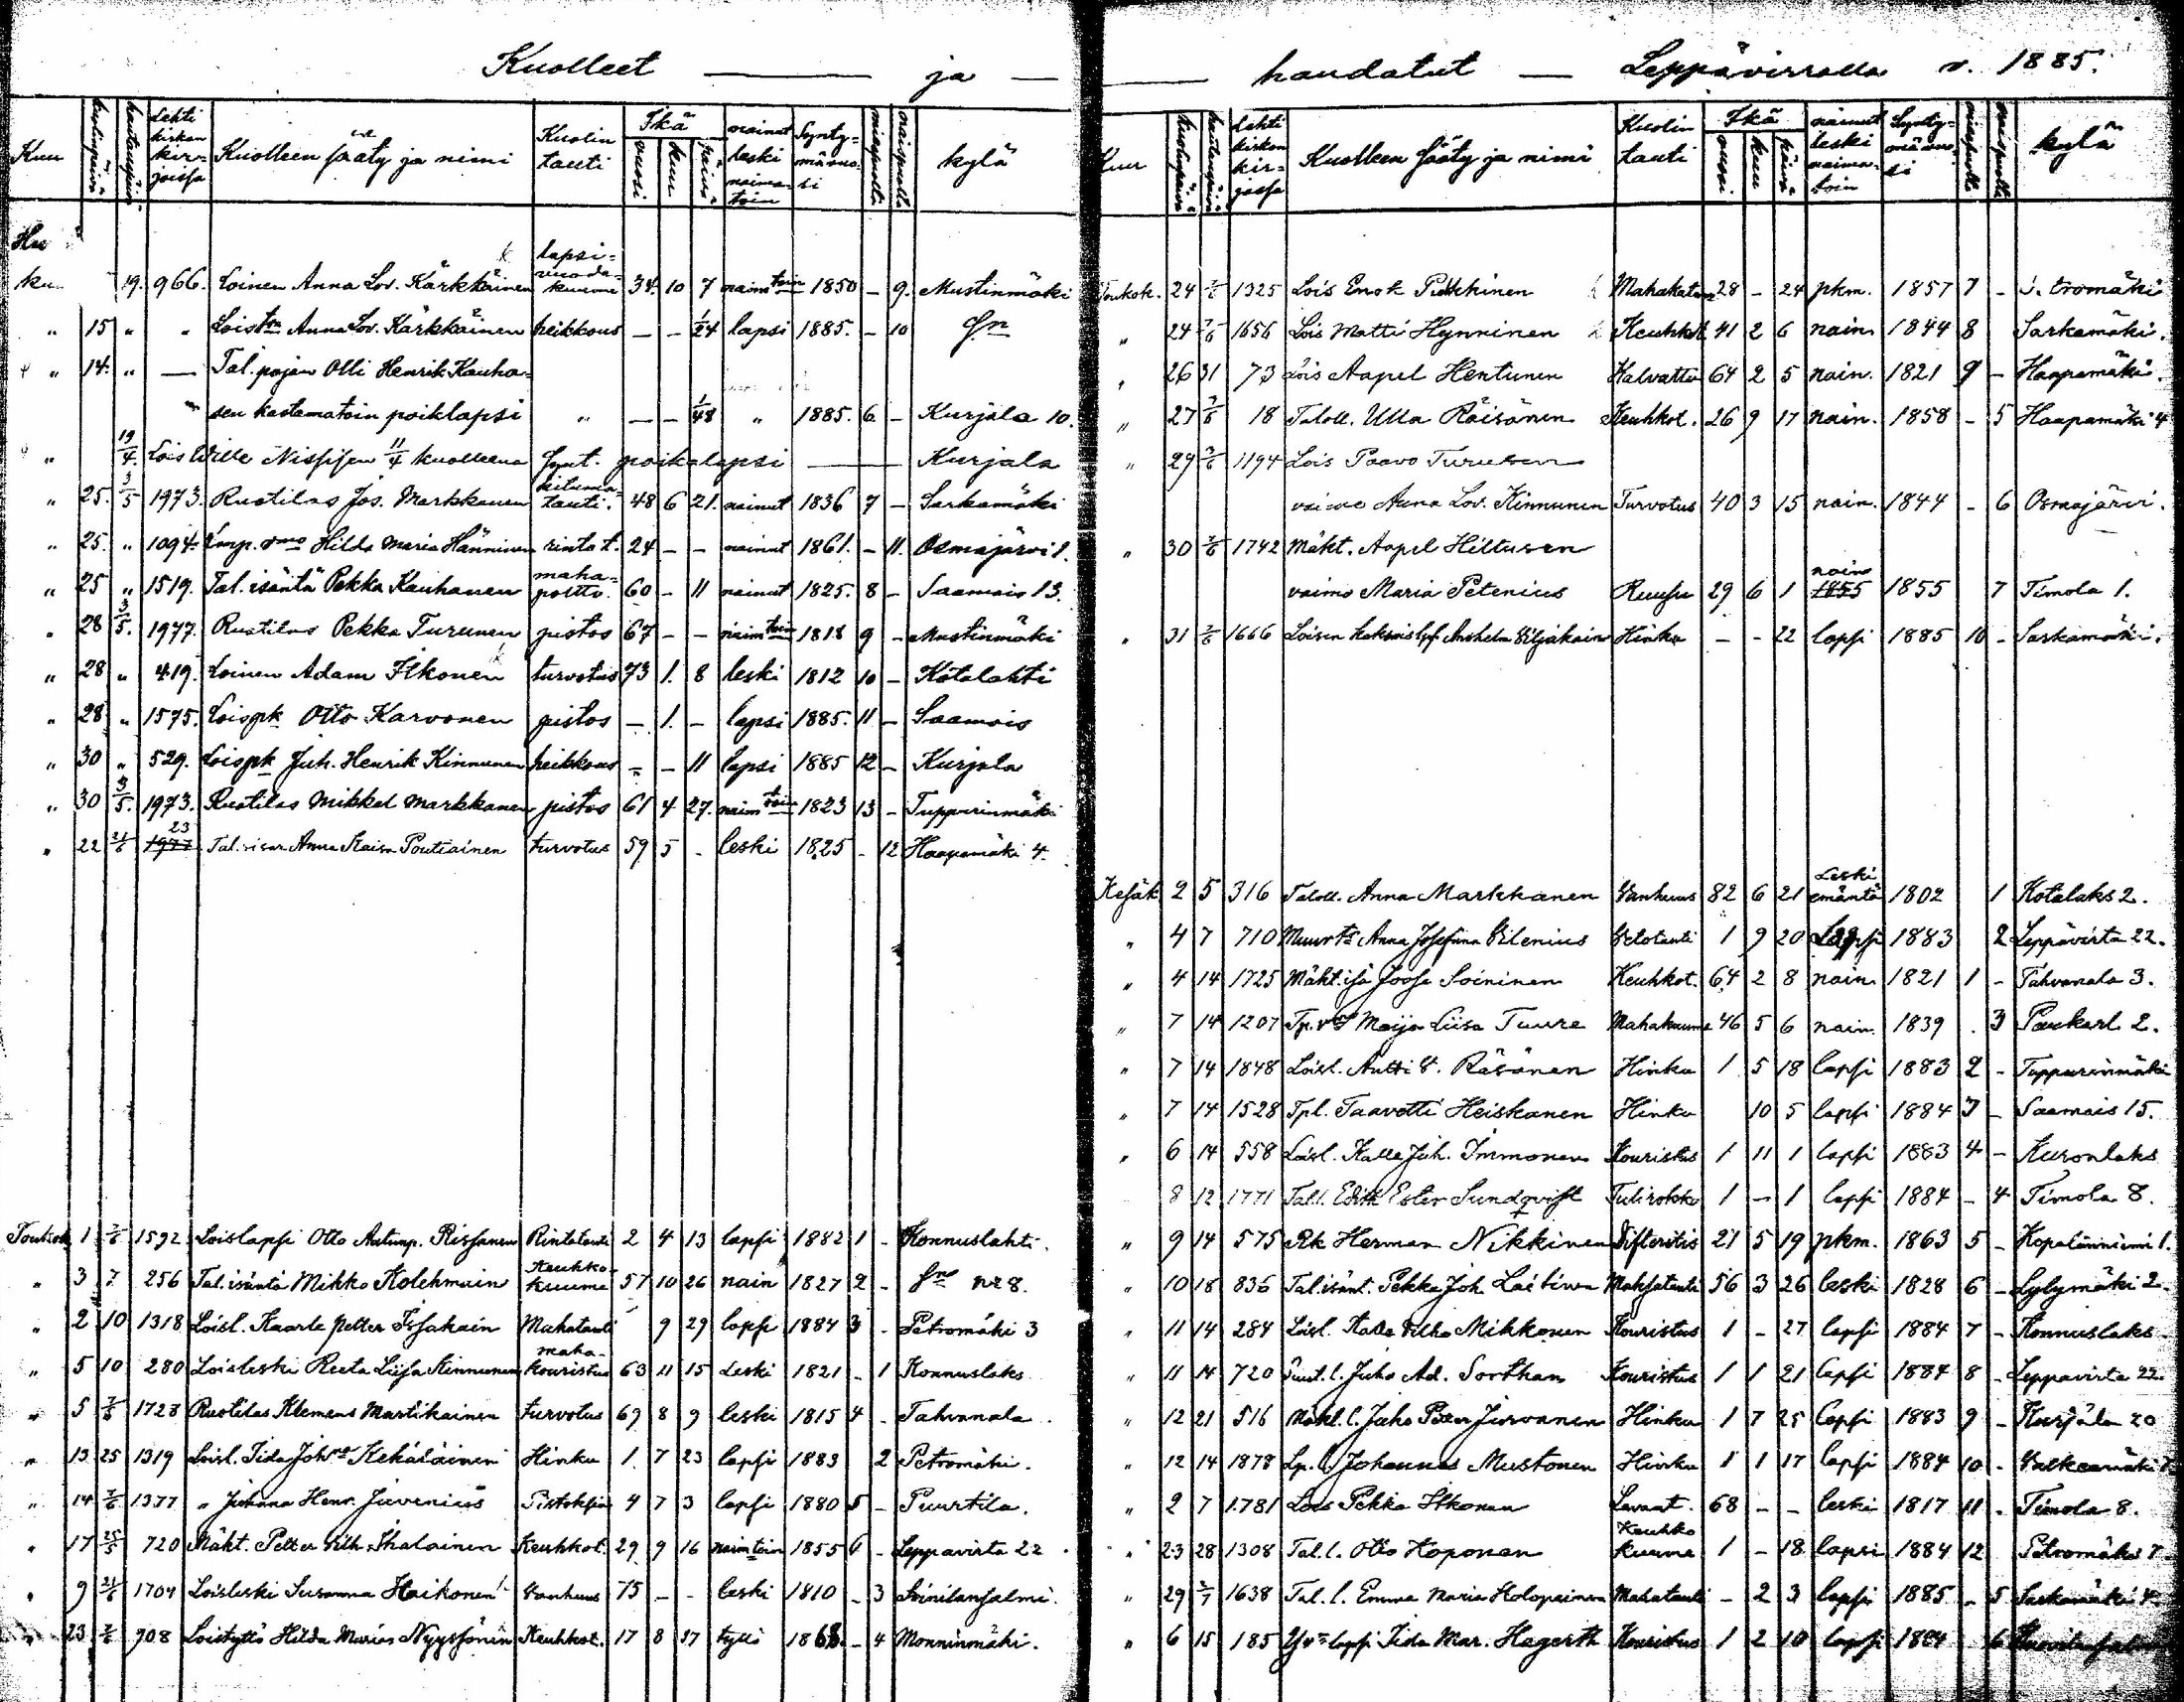 Kuolleet — ja — haudatut — Leppävirralla v. 1885.
Kuu kuolinpäivä hautauspäivä Lehti kirkon kirjassa Kuolleen sääty ja nimi Kuolin tauti Ikä vuosi kuu päivä nainut leski naimatoin Syntymävuosi miespuoli naispuoli kylä
19. 966. Loinen Anna Lov. Kärkkäinen lapsivuodekuume 34. 10 7 naimatoin 1850 – 9. Mustinmäki
„ 15 „ „ Anna Lov. Kärkkäinen heikkous – – 1/24 lapsi 1885. – 10
„ 14. „ — Tal. pojan Olli Henrik Kauha=
sen kastamatoin poiklapsi „ – – 1/48 „ 1885. 6 – Kurjala 10.
„ 19/4. Lois Wille Nissisen 11/4 kuolleena synt. poikalapsi — Kurjala
„ 25. 3/5 1973. Ruotilas Jos. Markkanen kituma tauti. 48 6 21. nainut 1836 7 – Sarkamäki
„ 25. „ 1094. Hilda Maria Hänninen rintat. 24 – – nainut 1861. – 11. Osmajärvi 1.
„ 25 „ 1519. Tal. isäntä Pekka Kauhanen mahapoltto. 60 – 11 nainut 1825. 8 – Saamais 13.
„ 28 3/5. 1977. Ruotilas Pekka Turunen pistos 67 – – naimtoin 1818 9 – Mustinmäki
„ 28 „ 419. Loinen Adam Itkonen turvotus 73 1. 8 leski 1812 10 – Kotalahti
„ 28 „ 1575. Loispk Otto Karvonen pistos – 1. – lapsi 1885. 11 – Saamais
„ 30 „ 529. Loispk Juh. Henrik Kinnunen heikkous – – 11 lapsi 1885 12 – Kurjala
„ 30 3/5. 1973. Ruotilas Mikkel Markkanen pistos 61 4 27. naimtoin 1823 13 – Tuppurinmäki
„ 22 21/6 23 Anna Kaisa Poutiainen turvotus 59 5 - leski 1825 - 12 Haapamäki 4.
Toukok 1 7/6 1592 Loislapsi Otto Rissanen Rintatauti 2 4 13 lapsi 1882 1 - Konnuslahti.
„ 3 7 256 Tal. isäntä Mikko Kolehmain Keuhkokuume 57 10 26 nain 1827 2 - nr 8.
„ 2 10 1318 Loisl. Kaarle Petter Issakain Mahatauti 9 29 lapsi 1884 3 - Petromäki 3
„ 5 10 280 Loisleski Reeta Liisa Kinnunen mahakouristus 63 11 15 Leski 1821 - 1 Konnuslaks
„ 5 7/6 1728 Ruotilas Klemens Martikainen turvotus 69 8 9 leski 1815 4 - Tahvanala
„ 13 25 1319 Loisl. Iida Joh. Kekäläinen Hinku 1. 7 23 lapsi 1883 2 Petromäki.
„ 14 7/6 1377 „ Juhana Henr. Juvenius 4 7 3 lapsi 1880 5 - Puurtila.
„ 17 25/5 720 Mäkt. Petter Ikalainen Keuhkot. 29 9 16 naimtoin 1855 6 - Leppavirta 22
„ 9 21/6 1704 Loisleski Susanna Haikonen Vanhuus 75 - - leski 1810 - 3 Soinilansalmi.
„ 23 7/6 908 Loistyttö Hilda Maria Nyyssönen Keuhkot. 17 8 17 tyttö 1868 - 4 Monninmäki.
Kuu kuolinpäivä hautauspäivä Lehti kirkon kirjassa Kuolleen sääty ja nimi Kuolin tauti Ikä vuosi kuu päivä nainut leski naimatoin Syntymävuosi miespuoli naispuoli kylä
Toukok. 24 7/6 1325 Lois Enok Pekkinen 28 - 24 pkm. 1857 7 -
„ 24 7/6 1656 Lois Matti Hynninen Keuhkot 41 2 6 nain 1844 8 Sarkamäki.
„ 26 31 73 Lois Aapel Hentunen Halvattu 64 2 5 nain. 1821 9 - Haapamäki.
„ 27 7/6 18 Taloll. Ulla Räisänen Keuhkot. 26 9 17 nain. 1858 - 5 Haapamäki 4
„ 29 7/6 1194 Lois Paavo Turusen
vaimo Anna Lov. Kinnunen Turvotus 40 3 15 nain. 1844 - 6 Osmajärvi.
„ 30 7/6 1742 Mäkt. Aapel Hiltusen
vaimo Maria Petenius Ruusu 29 6 1 nain 1855 1855 7 Timola 1.
„ 31 7/6 1666 Hinku - - 22 lapsi 1885 10 - Sarkamäki.
Kesäk 2 5 316 Taloll. Anna Markkanen Vanhuus 82 6 21 Leski emäntä 1802 1 Kotalaks 2.
„ 4 7 710 Anna Josefina Vilenius Vetotauti 1 9 20 Lapsi 1883 2 Leppävirta 22.
„ 4 14 1725 Mäkt. isä Joose Soininen Keuhkot. 64 2 8 nain. 1821 1 - Tahvanala 3.
„ 7 14 1207 Maija Liisa Tuure Mahakuume 46 5 6 nain. 1839 . 3 Paukarl. 2.
„ 7 14 1848 Loisl. Antti V. Räsänen Hinku 1 5 18 lapsi 1883 2 - Tuppurinmäki
„ 7 14 1528 Tpl. Taavetti Heiskanen Hinku 10 5 lapsi 1884 3 - Saamais 15.
„ 6 14 558 Loisl. Kalle Juh. Immonen Kouristus 1 11 1 lapsi 1883 4 - Kuronlaks
8 12 1771 Tal. l. Edith Ester Sundqvist Tulirokko 1 - 1 lapsi 1884 - 4 Timola 8.
„ 9 14 575 Rk Herman Nikkinen Difteritis 21 5 19 pkm. 1863 5 - Kopolanniemi 1.
„ 10 18 836 Tal. isänt. Pekka Joh Laitinen Maksatauti 56 3 26 leski 1828 6 - Lylymäki 2.
„ 11 14 284 Loisl. Kalle Vilho Mikkonen Kouristus 1 - 27 lapsi 1884 7 - Konnuslaks.
„ 11 14 720 Juho Ad. Sortham Kouristus 1 1 21 lapsi 1884 8 - Leppavirta 22.
„ 12 21 516 Mäkt. l. Juho Petter Jurvanen Hinku 1 7 25 lapsi 1883 9 - Kurjala 20
„ 12 14 1878 Lp. l. Johannes Mustonen Hinku 1 1 17 lapsi 1884 10 -
„ 2 7 1781 Lois Pekka Itkonen Lavant. 68 - - leski 1817 11 - Timola 8.
„ 23 28 1308 Tal. l. Otto Koponen Keuhkokuume 1 - 18 lapsi 1884 12 Petromäki 7
„ 29 5/7 1638 Tal. l. Emma Maria Holopainen Mahatauti - 2 3 lapsi 1885. - 5 Sarkamäki 4.
„ 6 15 185 lapsi Iida Mar. Hagerth Kouristus 1 2 10 lapsi 1884 6